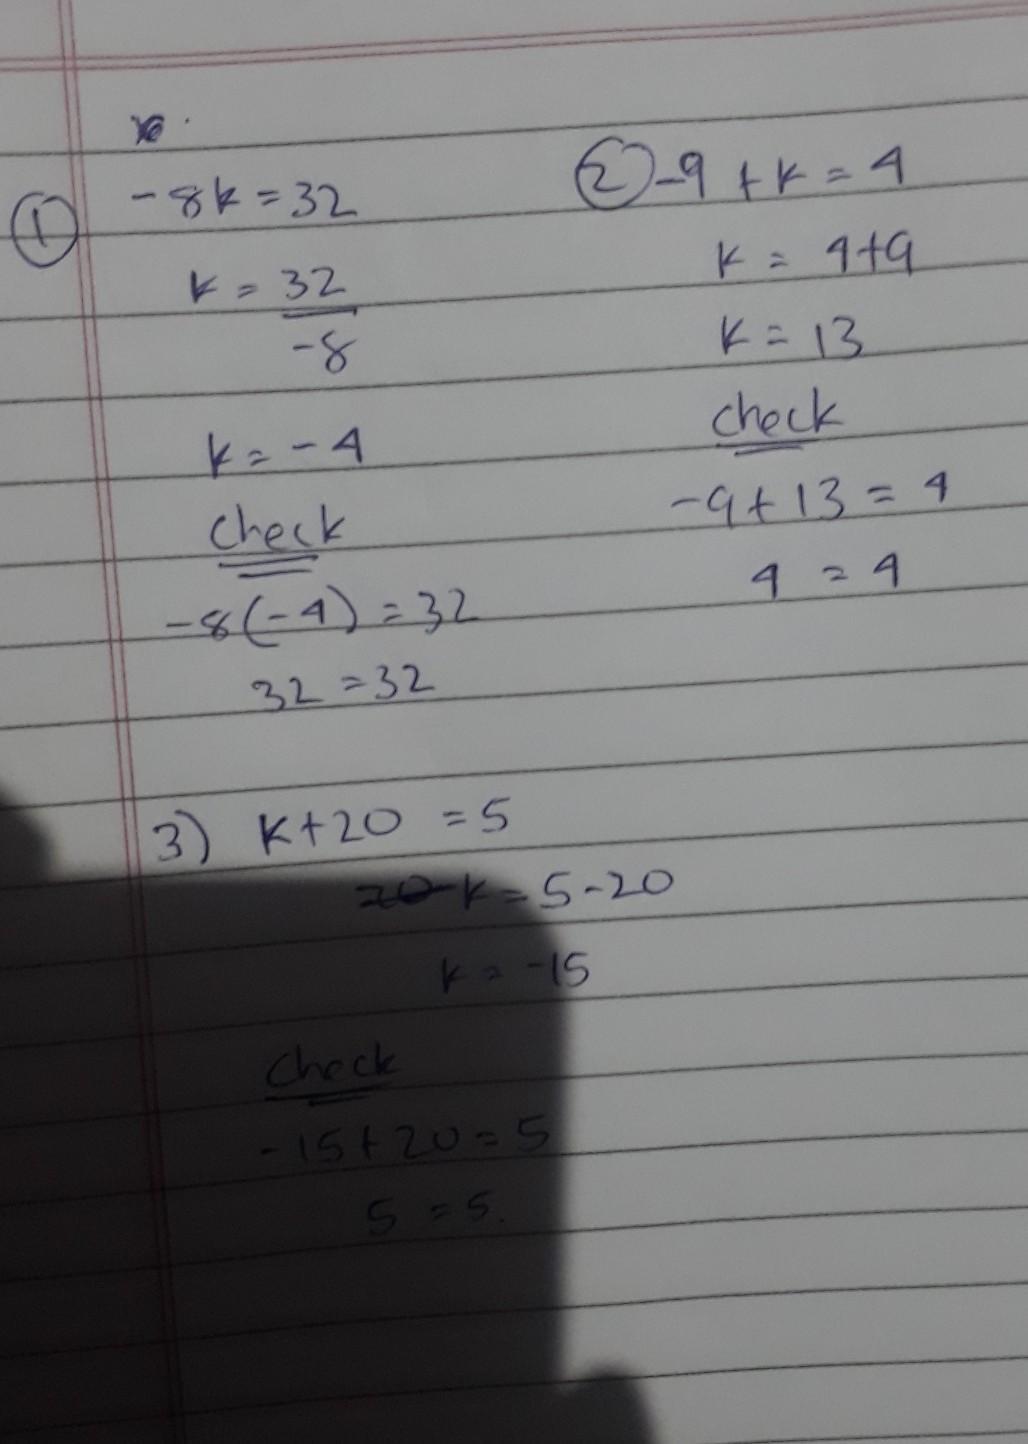 ①
-8k = 32
k = 32
-8
k = -4
Check
-8(-4) = 32
32 = 32
② -9 + k = 4
k = 4+9
k = 13
check
-9 + 13 = 4
4 = 4
3) k+20 = 5
k = 5-20
k = -15
Check
-15+20 = 5
5 = 5.